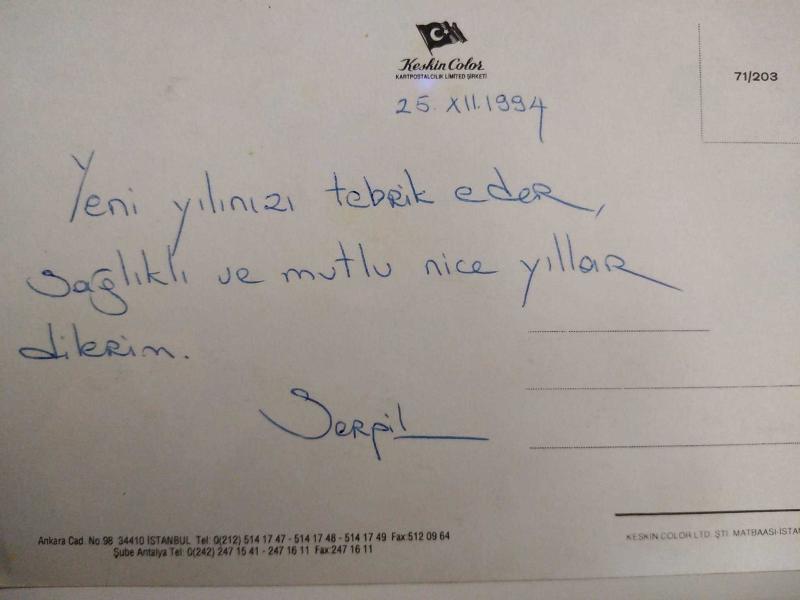 Keskin Color
KARTPOSTALCILIK LIMITED ŞİRKETİ
71/203
25. XII.1994
Yeni yılınızı tebrik eder,
sağlıklı ve mutlu nice yıllar
dilerim.
Serpil
Ankara Cad. No.98 34410 İSTANBUL Tel: 0(212) 514 17 47 - 514 17 48 - 514 17 49 Fax:512 09 64
Şube Antalya Tel: 0(242) 247 15 41 - 247 16 11 Fax:247 16 11
KESKİN COLOR LTD. ŞTİ. MATBAASI-İSTAN